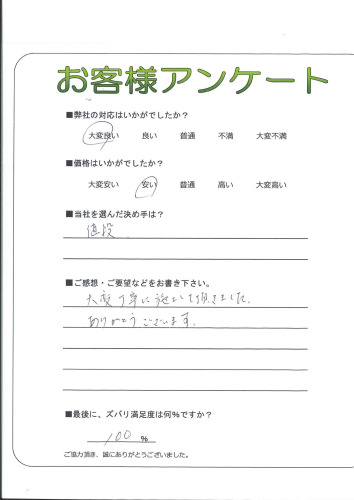 お客様アンケート
■弊社の対応はいかがでしたか？
大変良い 良い 普通 不満 大変不満
■価格はいかがでしたか？
大変安い 安い 普通 高い 大変高い
■当社を選んだ決め手は？
値段
■ご感想・ご要望などをお書き下さい。
大変丁寧に施工して頂きました。
ありがとうございます。
■最後に、ズバリ満足度は何%ですか？
100 %
ご協力頂き、誠にありがとうございました。